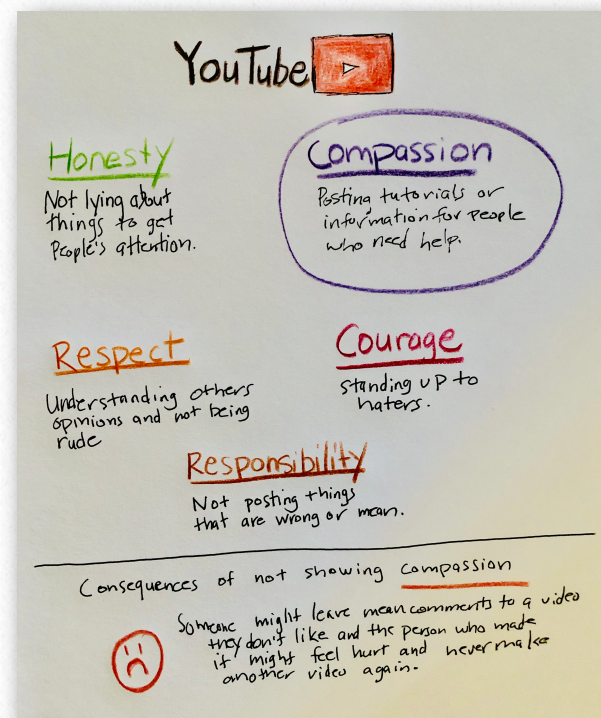 YouTube
Honesty
Not lying about
things to get
People's attention.
Compassion
Posting tutorials or
information for people
who need help.
Respect
Understanding others
opinions and not being
rude
Courage
standing up to
haters.
Responsibility
Not posting things
that are wrong or mean.
Consequences of not showing compassion
Someone might leave mean comments to a video
they don't like and the person who made
it might feel hurt and never make
another video again.